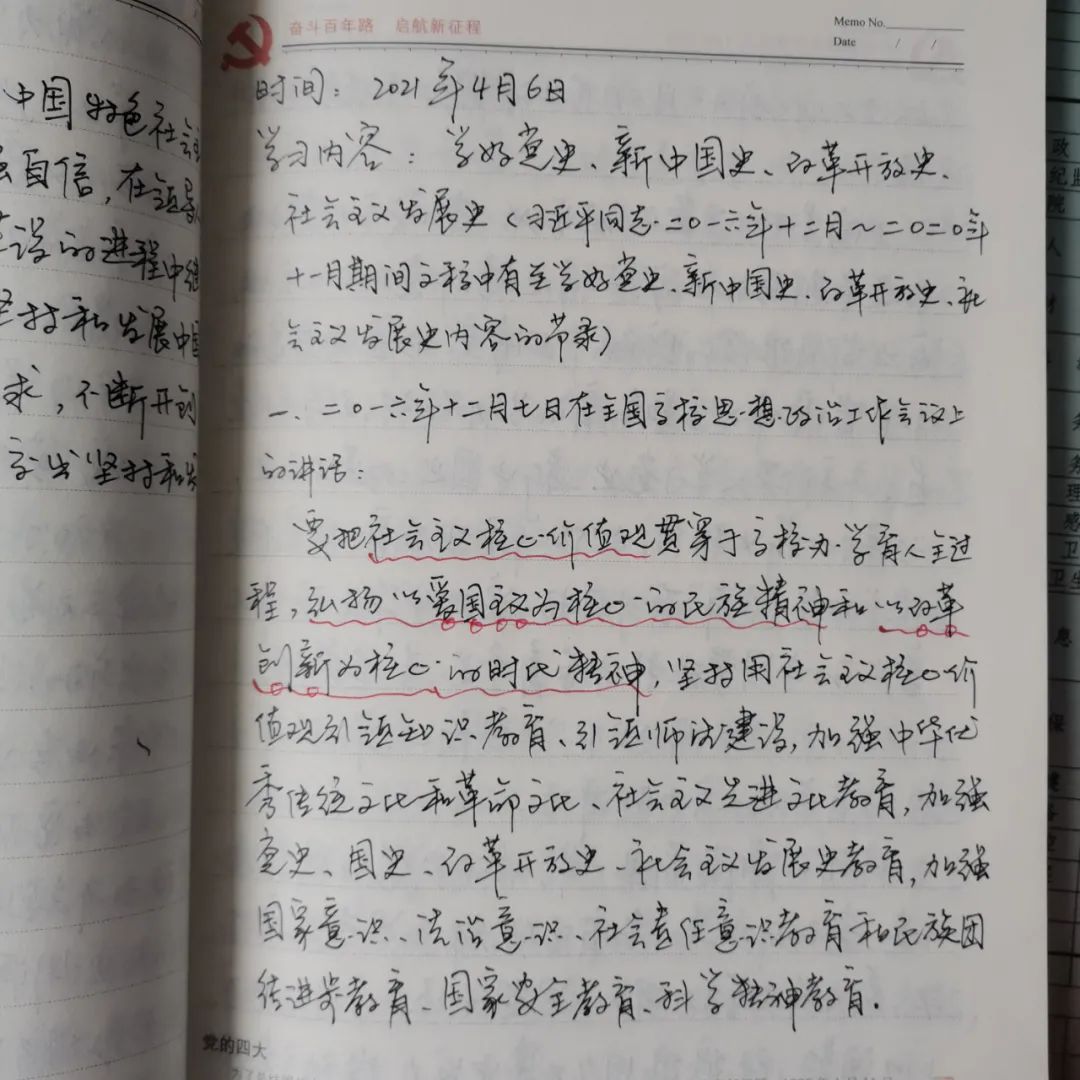 中国特色社会主
自信，在领导人
建设的进程中继
坚持和发展中国
求，不断开创
交出坚持和发
奋斗百年路 启航新征程
Memo No.
Date / /
时间：2021年4月6日
学习内容：学好党史、新中国史、改革开放史、
社会主义发展史（习近平同志二〇一六年十二月～二〇二〇年
十一月期间文稿中有关学好党史、新中国史、改革开放史、社
会主义发展史内容的节录）
一、二〇一六年十二月七日在全国高校思想政治工作会议上
的讲话：
要把社会主义核心价值观贯穿于高校办学育人全过
程，弘扬以爱国主义为核心的民族精神和以改革
创新为核心的时代精神，坚持用社会主义核心价
值观引领知识教育、引领师德建设，加强中华优
秀传统文化和革命文化、社会主义先进文化教育，加强
党史、国史、改革开放史、社会主义发展史教育，加强
国家意识、法治意识、社会责任意识教育和民族团
结进步教育、国家安全教育、科学精神教育.
党的四大
政
纪监
院
人
才
务
理
感
卫
卫生
息
保